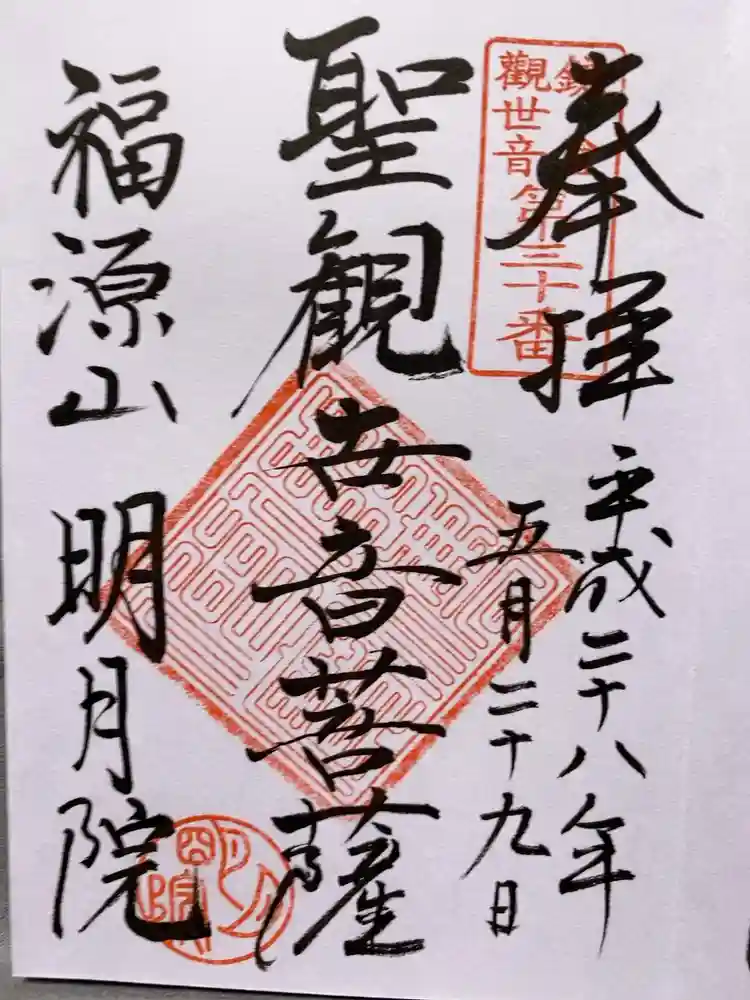 奉拝
平成二十八年
五月二十九日
聖観世音菩薩
福源山 明月院
鎌倉
觀世音第三十番